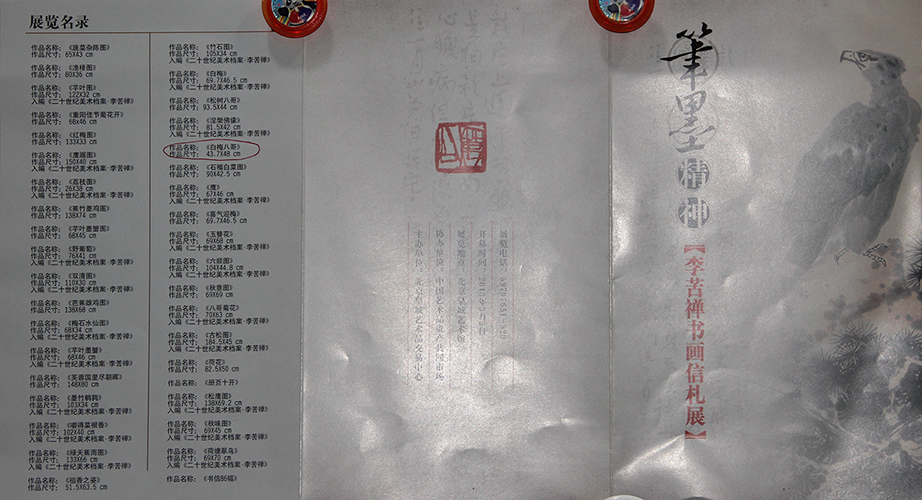 展览名录
作品名称：《蔬菜杂陈图》
作品尺寸：65X43 cm
作品名称：《渔椟图》
作品尺寸：80X36 cm
作品名称：《芋叶图》
作品尺寸： 122X32 cm
入编《二十世纪美术档案·李苦禅》
作品名称：《重阳佳节菊花开》
作品尺寸： 68X46 cm
作品名称：《红梅图》
作品尺寸：133X33 cm
作品名称：《鹰踞图》
作品尺寸：150X40 cm
入编《二十世纪美术档案·李苦禅》
作品名称：《荔枝图》
作品尺寸：26X38 cm
入编《二十世纪美术档案·李苦禅》
作品名称：《蕉竹墨鸡图》
作品尺寸：138X74 cm
作品名称：《芋叶墨蟹图》
作品尺寸：68X45 cm
作品名称：《野葡萄》
作品尺寸：76X41 cm
入编《二十世纪美术档案·李苦禅》
作品名称：《双清图》
作品尺寸：110X30 cm
入编《二十世纪美术档案·李苦禅》
作品名称：《芭蕉雄鸡图》
作品尺寸：138X68 cm
作品名称：《梅石水仙图》
作品尺寸：68X34 cm
入编《二十世纪美术档案·李苦禅》
作品名称：《芋叶墨蟹》
作品尺寸：68X46 cm
入编《二十世纪美术档案·李苦禅》
作品名称：《芙蓉国里尽朝晖》
作品尺寸： 148X80 cm
作品名称：《墨竹鹌鹑》
作品尺寸：103X34 cm
入编《二十世纪美术档案·李苦禅》
作品名称：《嚼得菜根香》
作品尺寸：102X40 cm
入编《二十世纪美术档案·李苦禅》
作品名称：《绿天蕉雨图》
作品尺寸： 133X66 cm
入编《二十世纪美术档案·李苦禅》
作品名称：《祖香之姿》
作品尺寸： 51.5X63.5 cm
作品名称：《竹石图》
作品尺寸：105X34 cm
入编《二十世纪美术档案·李苦禅》
作品名称：《白梅》
作品尺寸：69.7X46.5 cm
入编《二十世纪美术档案·李苦禅》
作品名称：《松树八哥》
作品尺寸：93.5X44 cm
作品名称：《涅槃佛像》
作品尺寸： 81.5X42 cm
入编《二十世纪美术档案·李苦禅》
作品名称：《白梅八哥》
作品尺寸： 43.7X48 cm
作品名称：《石榴白菜图》
作品尺寸：90X42.5 cm
作品名称：《鹰》
作品尺寸：67X46 cm
入编《二十世纪美术档案·李苦禅》
作品名称：《喜气迎梅》
作品尺寸：69.7X46.5 cm
作品名称：《玉簪花》
作品尺寸：69X68 cm
入编《二十世纪美术档案·李苦禅》
作品名称：《六顺图》
作品尺寸：104X44.8 cm
入编《二十世纪美术档案·李苦禅》
作品名称：《秋意图》
作品尺寸：69X69 cm
作品名称：《八哥菊花》
作品尺寸：70X63 cm
入编《二十世纪美术档案·李苦禅》
作品名称：《古松图》
作品尺寸：184.5X45 cm
入编《二十世纪美术档案·李苦禅》
作品名称：《荷花》
作品尺寸：82.5X50 cm
作品名称：《册页十开》
作品名称：《松鹰图》
作品尺寸：138X69.2 cm
入编《二十世纪美术档案·李苦禅》
作品名称：《秋味图》
作品尺寸：69X45 cm
入编《二十世纪美术档案·李苦禅》
作品名称：《荷塘翠鸟》
作品尺寸：69X70 cm
入编《二十世纪美术档案·李苦禅》
作品名称：《书信86幅》
展览电话：
开幕时间：
展览地点：北京皇城艺术馆
协办单位：中国艺术品资产中国市场
主办单位：北京皇城艺术品交易中心
筆墨精神
【李苦禅书画信札展】